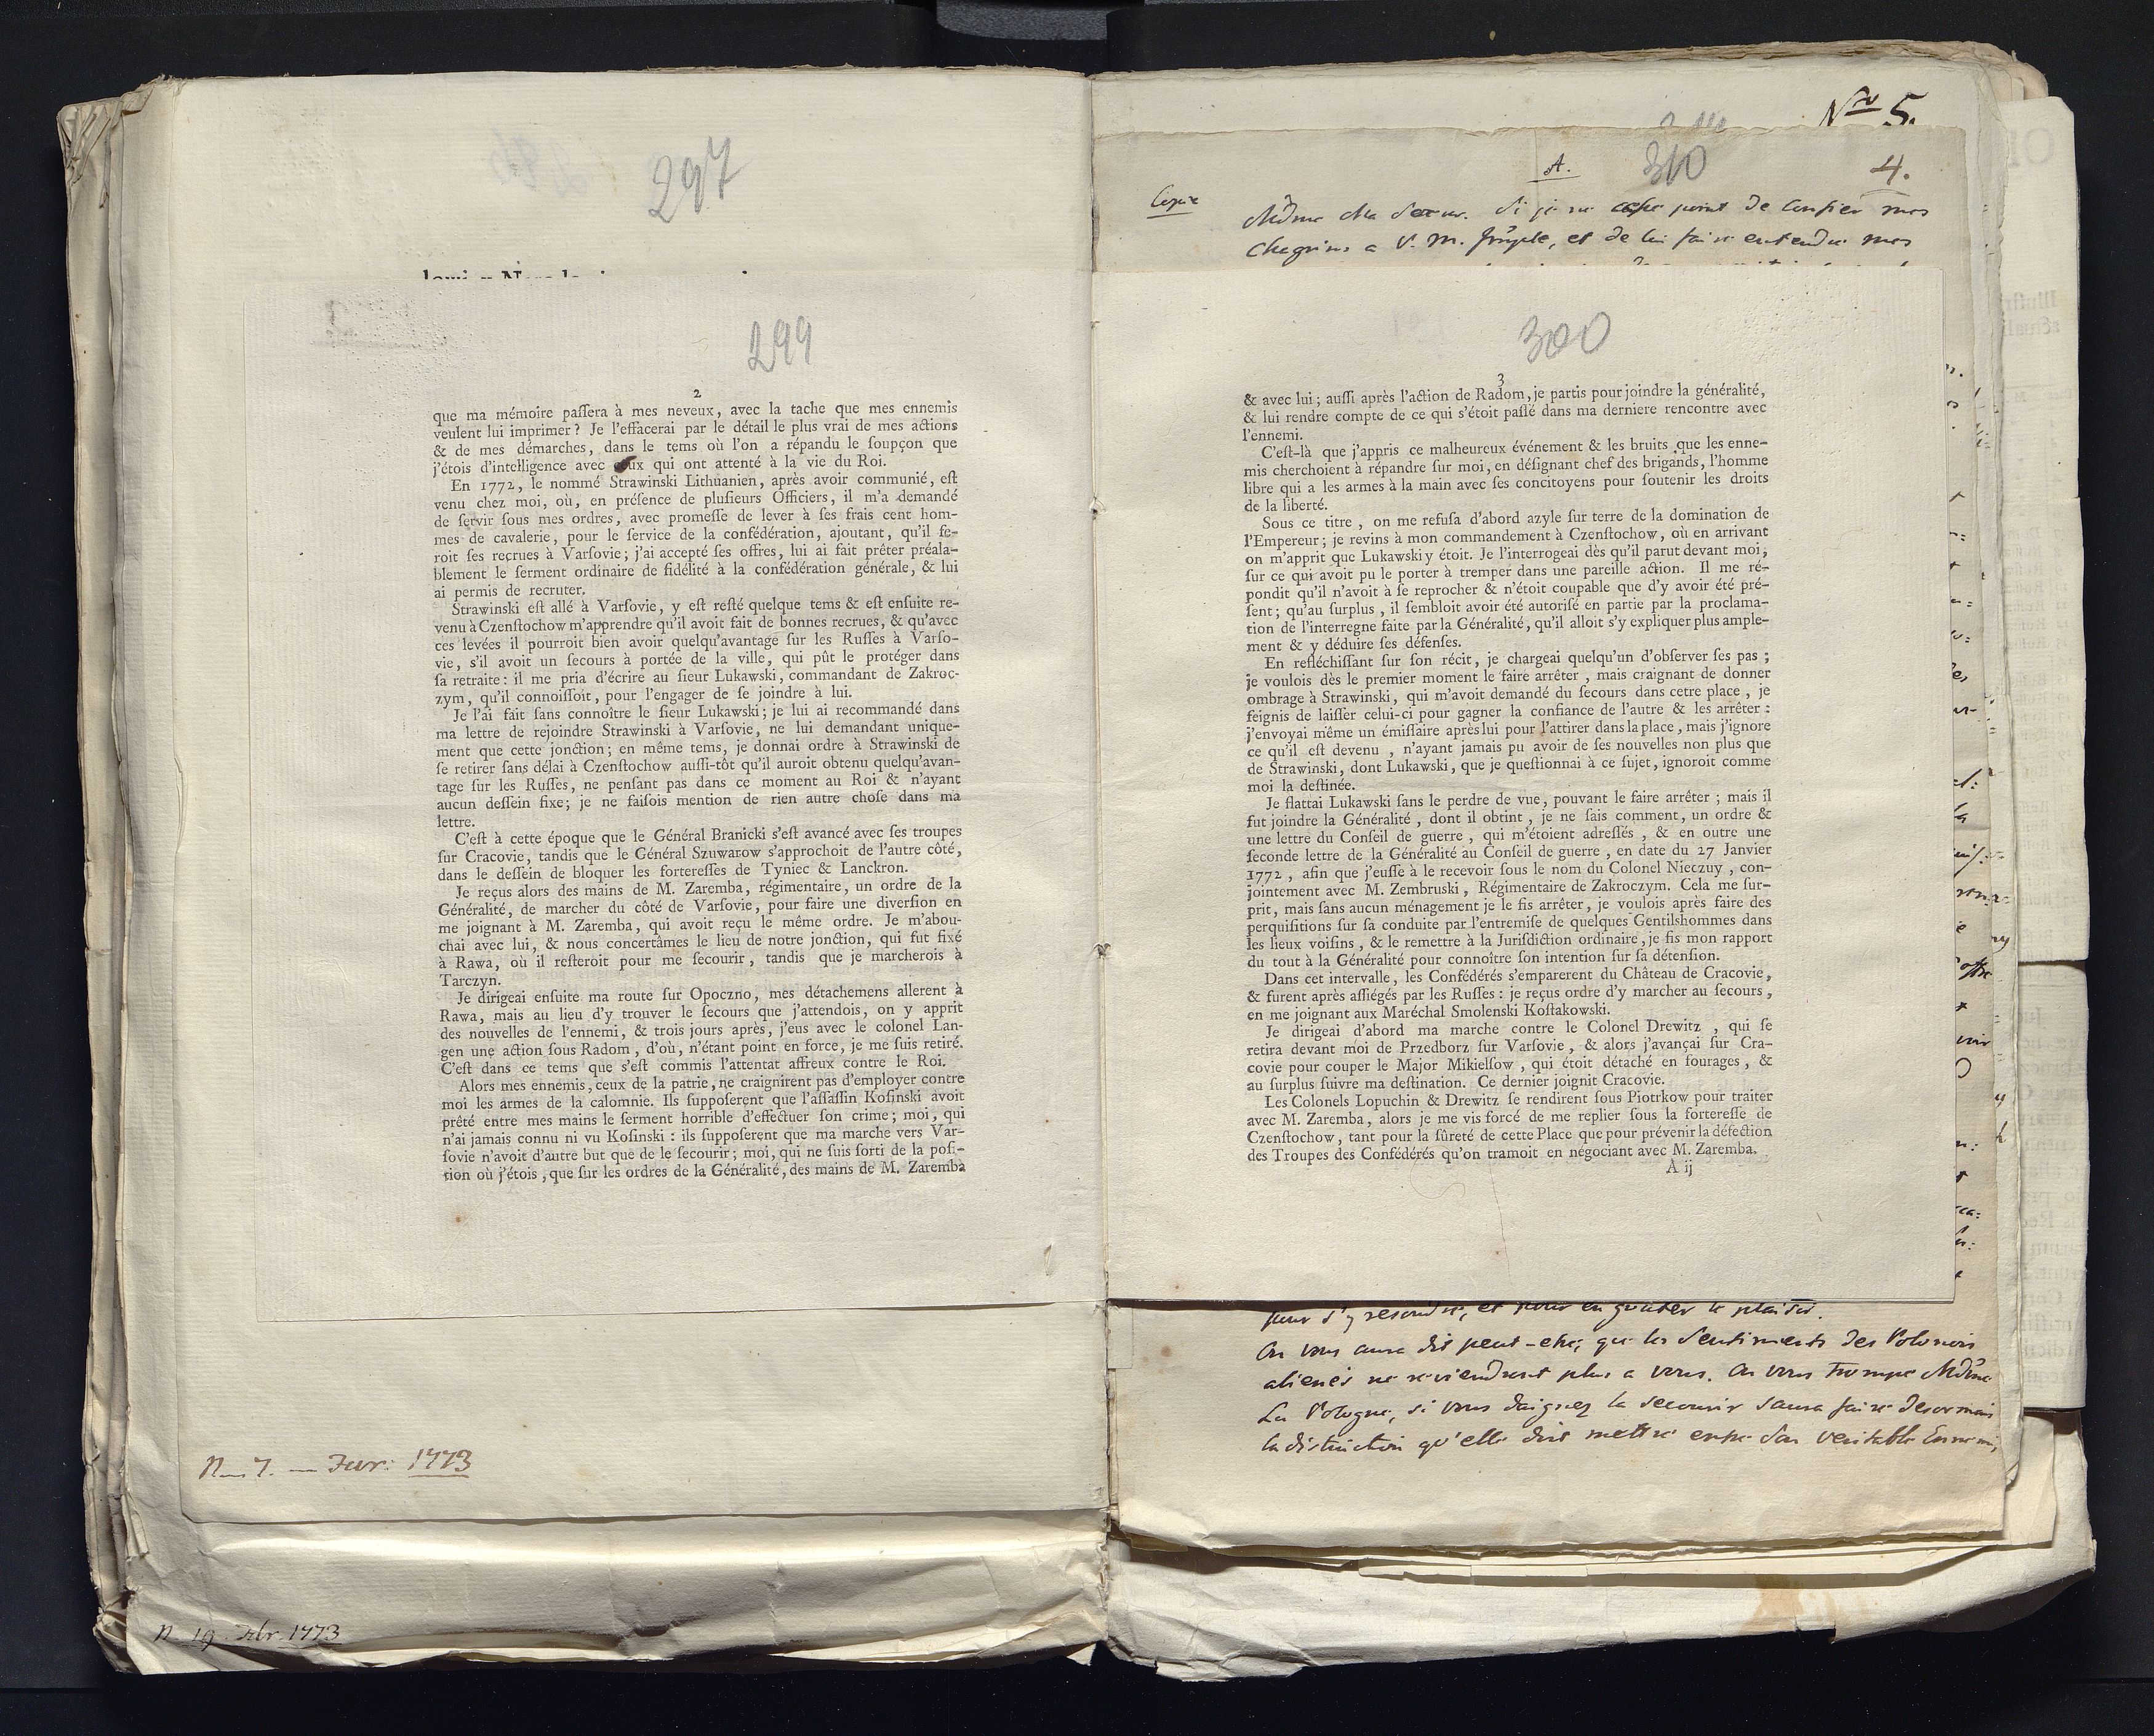 297
299
2
que ma mémoire paſſera à mes neveux, avec la tache que mes ennemis
veulent lui imprimer? Je l'effacerai par le détail le plus vrai de mes actions
& de mes démarches, dans le tems où l'on a répandu le ſoupçon que
j'étois d'intelligence avec ceux qui ont attenté à la vie du Roi.
En 1772, le nommé Strawinski Lithuanien, après avoir communié, eſt
venu chez moi, où, en préſence de pluſieurs Officiers, il m'a demandé
de ſervir ſous mes ordres, avec promeſſe de lever à ſes frais cent hom-
mes de cavalerie, pour le ſervice de la confédération, ajoutant, qu'il fe-
roit ſes reçrues à Varſovie; j'ai accepté ſes offres, lui ai fait prêter préala-
blement le ſerment ordinaire de fidélité à la confédération générale, & lui
ai permis de recruter.
Strawinski eſt allé à Varſovie, y eſt reſté quelque tems & eſt enſuite re-
venu à Czenſtochow m'apprendre qu'il avoit fait de bonnes recrues, & qu'avec
ces levées il pourroit bien avoir quelqu'avantage ſur les Ruſſes à Varſo-
vie, s'il avoit un ſecours à portée de la ville, qui pût le protéger dans
ſa retraite: il me pria d'écrire au ſieur Lukawski, commandant de Zakroc-
zym, qu'il connoiſſoit, pour l'engager de ſe joindre à lui.
Je l'ai fait ſans connoître le ſieur Lukawski; je lui ai recommandé dans
ma lettre de rejoindre Strawinski à Varſovie, ne lui demandant unique-
ment que cette jonction; en même tems, je donnai ordre à Strawinski de
ſe retirer ſans délai à Czenſtochow auſſi-tôt qu'il auroit obtenu quelqu'avan-
tage ſur les Ruſſes, ne penſant pas dans ce moment au Roi & n'ayant
aucun deſſein fixe; je ne faiſois mention de rien autre choſe dans ma
lettre.
C'eſt à cette époque que le Général Branicki s'eſt avancé avec ſes troupes
ſur Cracovie, tandis que le Général Szuwarow s'approchoit de l'autre côté,
dans le deſſein de bloquer les fortereſſes de Tyniec & Lanckron.
Je reçus alors des mains de M. Zaremba, régimentaire, un ordre de la
Généralité, de marcher du côté de Varſovie, pour faire une diverſion en
me joignant à M. Zaremba, qui avoit reçu le même ordre. Je m'abou-
chai avec lui, & nous concertâmes le lieu de notre jonction, qui fut fixé
à Rawa, où il reſteroit pour me ſecourir, tandis que je marcherois à
Tarczyn.
Je dirigeai enſuite ma route ſur Opoczno, mes détachemens allerent à
Rawa, mais au lieu d'y trouver le ſecours que j'attendois, on y apprit
des nouvelles de l'ennemi, & trois jours après, j'eus avec le colonel Lan-
gen une action ſous Radom, d'où, n'étant point en force, je me ſuis retiré.
C'eſt dans ce tems que s'eſt commis l'attentat affreux contre le Roi.
Alors mes ennemis, ceux de la patrie, ne craignirent pas d'employer contre
moi les armes de la calomnie. Ils ſuppoſerent que l'aſſaſſin Koſinski avoit
prêté entre mes mains le ſerment horrible d'effectuer ſon crime; moi, qui
n'ai jamais connu ni vu Koſinski : ils ſuppoſerent que ma marche vers Var-
ſovie n'avoit d'autre but que de le ſecourir; moi, qui ne ſuis ſorti de la poſi-
tion où j'étois, que ſur les ordres de la Généralité, des mains de M. Zaremba
N. 7. — Fevr: 1773
N. 19 Febr. 1773
Nro 5.
A.
310
4.
Copie
Mdme Ma Soeur. Si je ne cesse point de confier mes
Chagrins a V. M. Imple, et de lui faire entendre mes
300
3
& avec lui; auſſi après l'action de Radom, je partis pour joindre la généralité,
& lui rendre compte de ce qui s'étoit paſſé dans ma derniere rencontre avec
l'ennemi.
C'eſt-là que j'appris ce malheureux événement & les bruits que les enne-
mis cherchoient à répandre ſur moi, en déſignant chef des brigands, l'homme
libre qui a les armes à la main avec ſes concitoyens pour ſoutenir les droits
de la liberté.
Sous ce titre, on me refuſa d'abord azyle ſur terre de la domination de
l'Empereur; je revins à mon commandement à Czenſtochow, où en arrivant
on m'apprit que Lukawski y étoit. Je l'interrogeai dès qu'il parut devant moi,
ſur ce qui avoit pu le porter à tremper dans une pareille action. Il me ré-
pondit qu'il n'avoit à ſe reprocher & n'étoit coupable que d'y avoir été pré-
ſent; qu'au ſurplus, il ſembloit avoir été autoriſé en partie par la proclama-
tion de l'interregne faite par la Généralité, qu'il alloit s'y expliquer plus ample-
ment & y déduire ſes défenſes.
En reſléchiſſant ſur ſon récit, je chargeai quelqu'un d'obſerver ſes pas;
je voulois dès le premier moment le faire arrêter, mais craignant de donner
ombrage à Strawinski, qui m'avoit demandé du ſecours dans cetre place, je
feignis de laiſſer celui-ci pour gagner la confiance de l'autre & les arrêter:
j'envoyai même un émiſſaire après lui pour l'attirer dans la place, mais j'ignore
ce qu'il eſt devenu, n'ayant jamais pu avoir de ſes nouvelles non plus que
de Strawinski, dont Lukawski, que je queſtionnai à ce ſujet, ignoroit comme
moi la deſtinée.
Je flattai Lukawski ſans le perdre de vue, pouvant le faire arrêter; mais il
fut joindre la Généralité, dont il obtint, je ne ſais comment, un ordre &
une lettre du Conſeil de guerre, qui m'étoient adreſſés, & en outre une
ſeconde lettre de la Généralité au Conſeil de guerre, en date du 27 Janvier
1772, afin que j'euſſe à le recevoir ſous le nom du Colonel Nieczuy, con-
jointement avec M. Zembruski, Régimentaire de Zakroczym. Cela me ſur-
prit, mais ſans aucun ménagement je le fis arrêter, je voulois après faire des
perquiſitions ſur ſa conduite par l'entremiſe de quelques Gentilshommes dans
les lieux voiſins, & le remettre à la Juriſdiction ordinaire, je fis mon rapport
du tout à la Généralité pour connoître ſon intention ſur ſa détenſion.
Dans cet intervalle, les Confédérés s'emparerent du Château de Cracovie,
& furent après aſſiégés par les Ruſſes: je reçus ordre d'y marcher au ſecours,
en me joignant aux Maréchal Smolenski Koſtakowski.
Je dirigeai d'abord ma marche contre le Colonel Drewitz, qui ſe
retira devant moi de Przedborz ſur Varſovie, & alors j'avançai ſur Cra-
covie pour couper le Major Mikielſow, qui étoit détaché en fourages, &
au ſurplus ſuivre ma deſtination. Ce dernier joignit Cracovie.
Les Colonels Lopuchin & Drewitz ſe rendirent ſous Piotrkow pour traiter
avec M. Zaremba, alors je me vis forcé de me replier ſous la fortereſſe de
Czenſtochow, tant pour la ſûreté de cette Place que pour prévenir la défection
des Troupes des Confédérés qu'on tramoit en négociant avec M. Zaremba.
A ij
pour s'y resoudre, et pour en gouter le plaisir.
On vous aura dit peut-etre, que les Sentiments des Polonois
alienés ne reviendront plus a vous. On vous trompe Mdme
La Pologne, si vous daignez la secourir saura faire desormais
la distinction qu'elle doit mettre entre son veritable Ennemi,